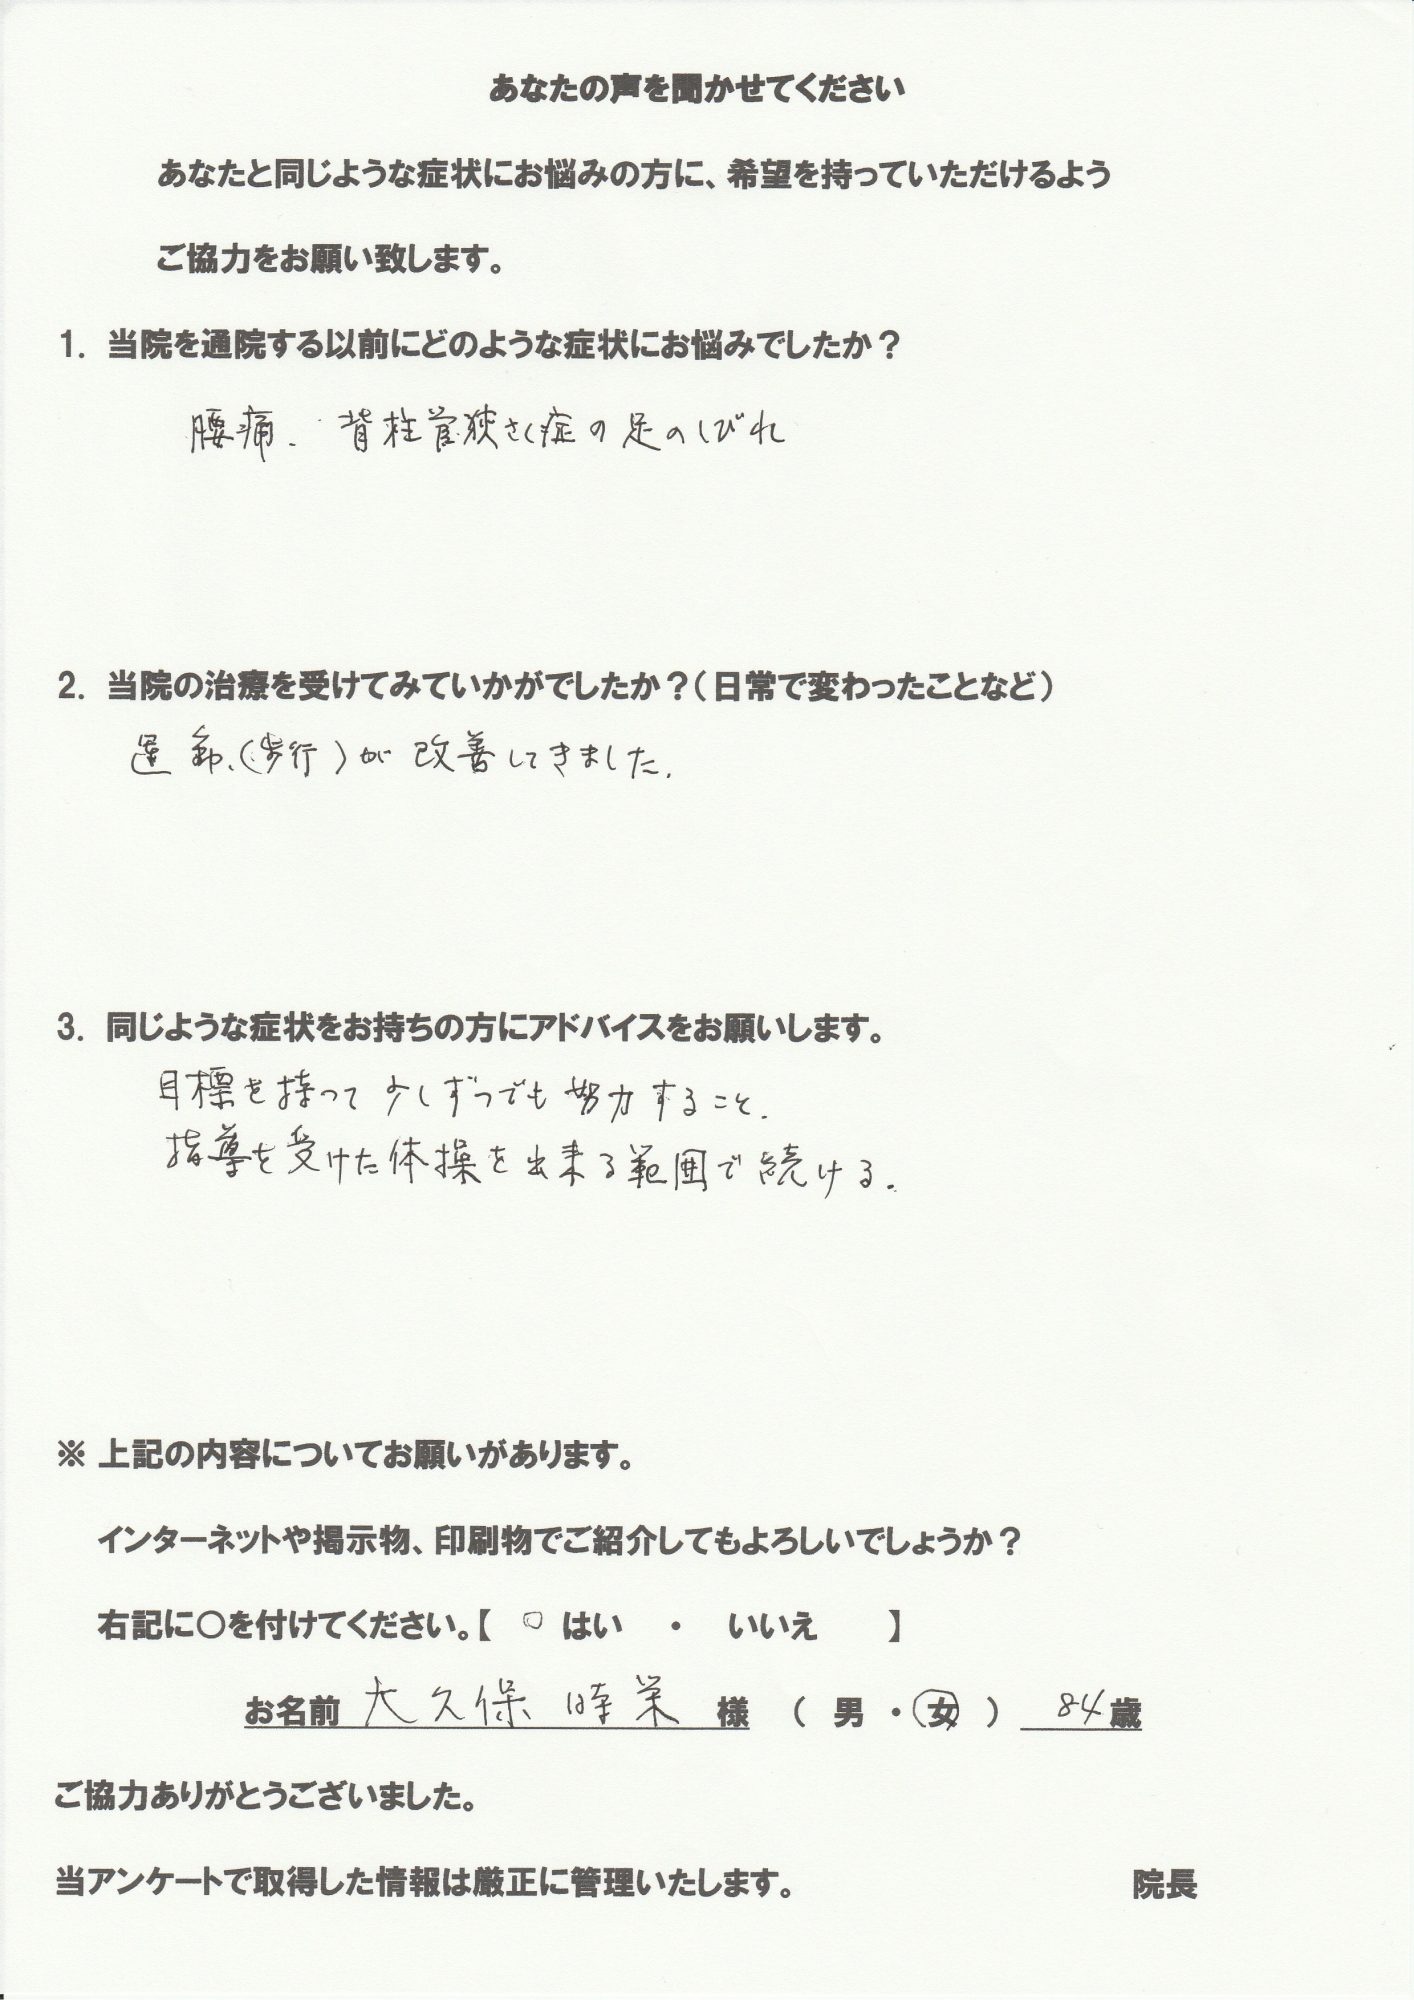 あなたの声を聞かせてください
あなたと同じような症状にお悩みの方に、希望を持っていただけるよう
ご協力をお願い致します。
1. 当院を通院する以前にどのような症状にお悩みでしたか？
腰痛. 脊柱管狭さく症の足のしびれ
2. 当院の治療を受けてみていかがでしたか？（日常で変わったことなど）
運動、（歩行）が改善してきました.
3. 同じような症状をお持ちの方にアドバイスをお願いします。
目標を持って少しずつでも努力すること.
指導を受けた体操を出来る範囲で続ける.
※ 上記の内容についてお願いがあります。
インターネットや掲示物、印刷物でご紹介してもよろしいでしょうか？
右記に〇を付けてください。【 〇 はい ・ いいえ 】
お名前 大久保 時栄 様 （ 男 ・ 女 ） 84歳
ご協力ありがとうございました。
当アンケートで取得した情報は厳正に管理いたします。 院長